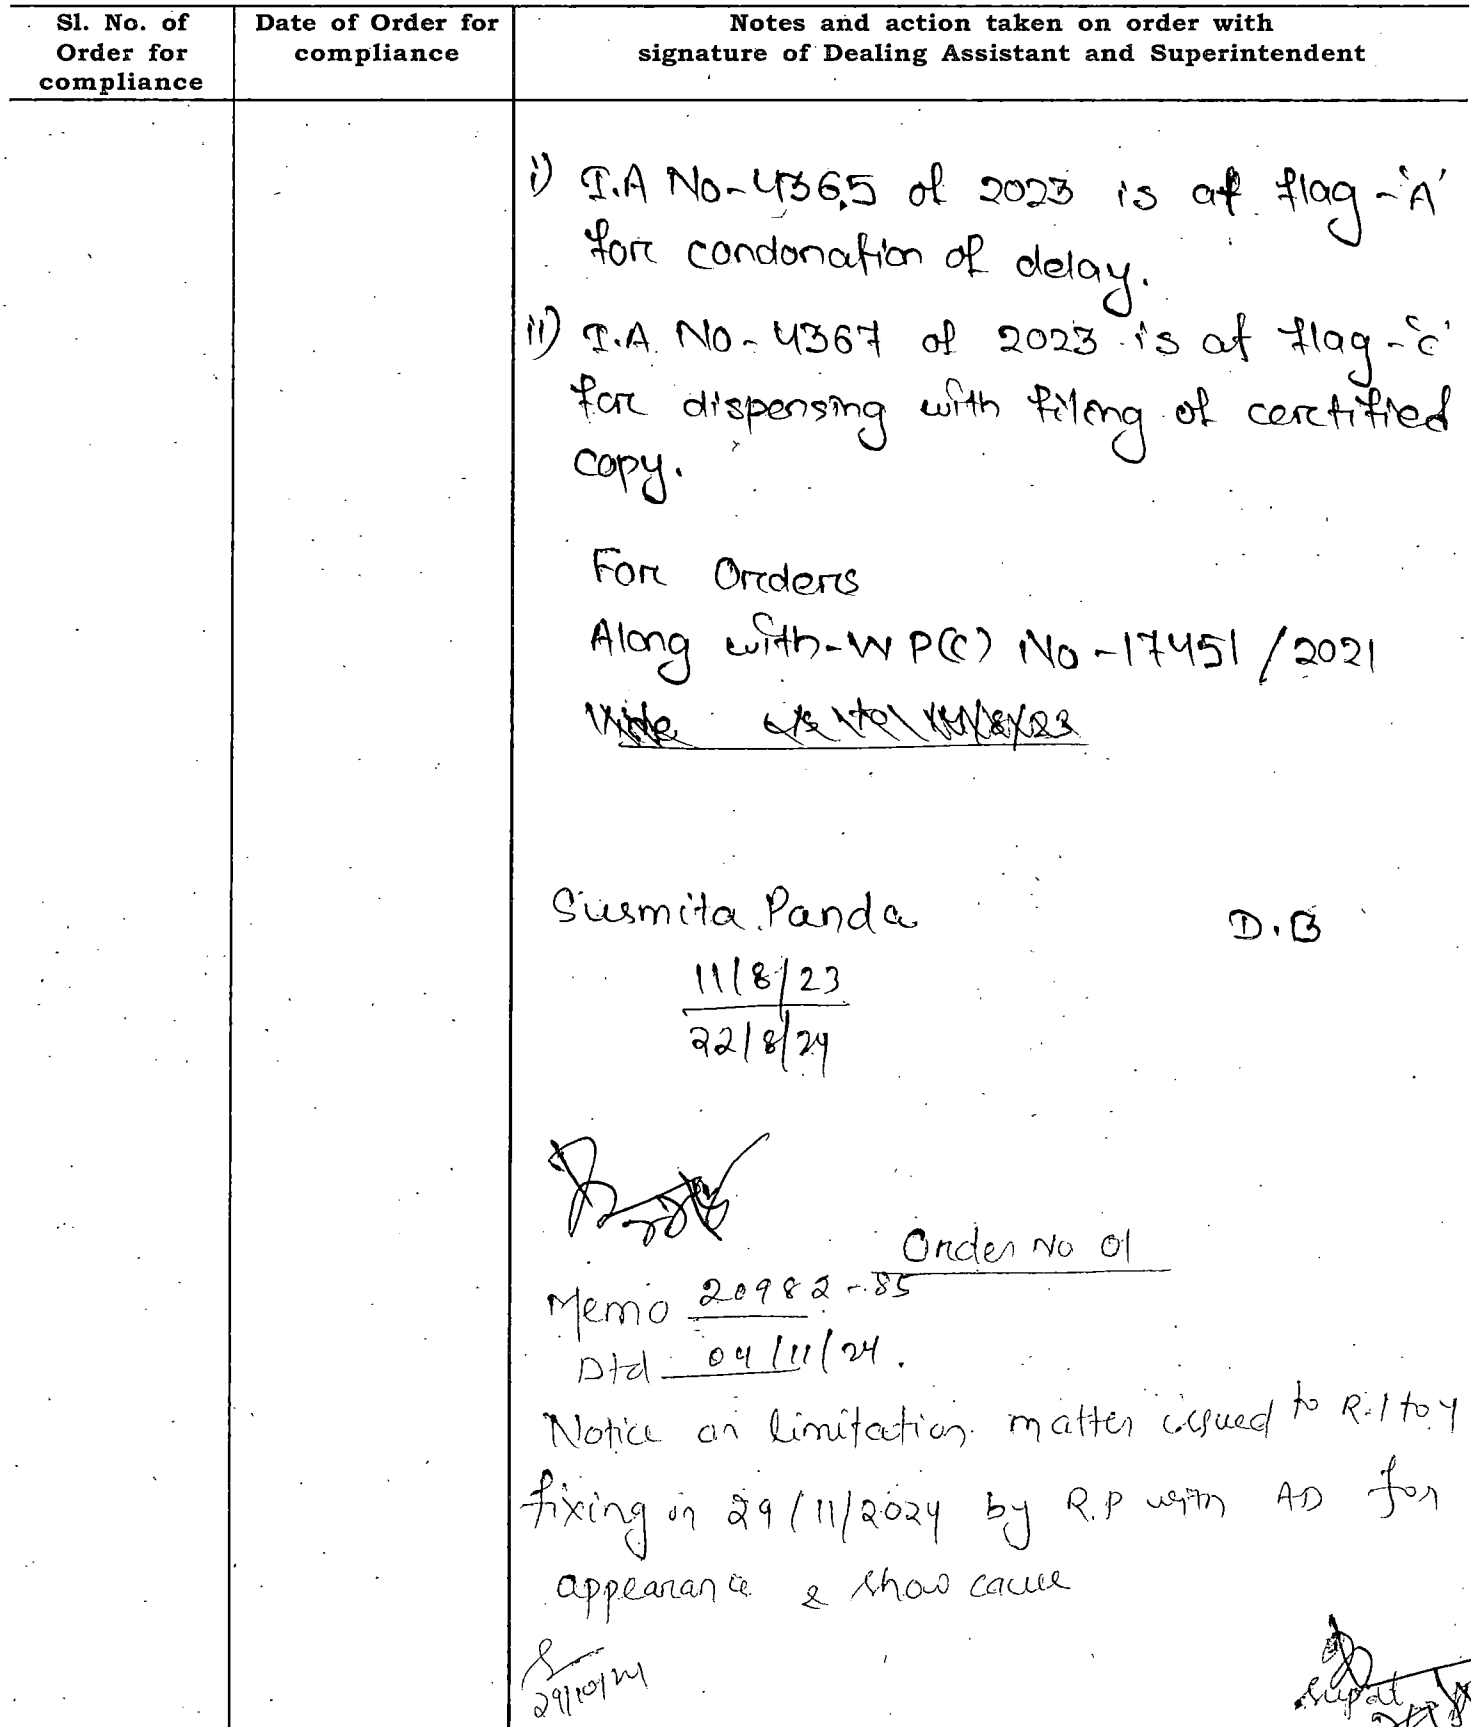 Sl. No. of Order for compliance
Date of Order for compliance
Notes and action taken on order with signature of Dealing Assistant and Superintendent
i) I.A No-4365 of 2023 is at flag-'A'
for condonation of delay.
ii) I.A. No-4367 of 2023 is at flag-'C'
for dispensing with filing of certified
copy.
For Orders
Along with-W P(C) No-17451/2021
Susmita Panda D.B
11/8/23
22/8/24
Order No 01
Memo 20982-85
Dtd 04/11/24.
Notice on limitation matter issued to R.1 to 4
fixing on 29/11/2024 by R.P with AD for
appearance & show cause
29/10/24
Supdt